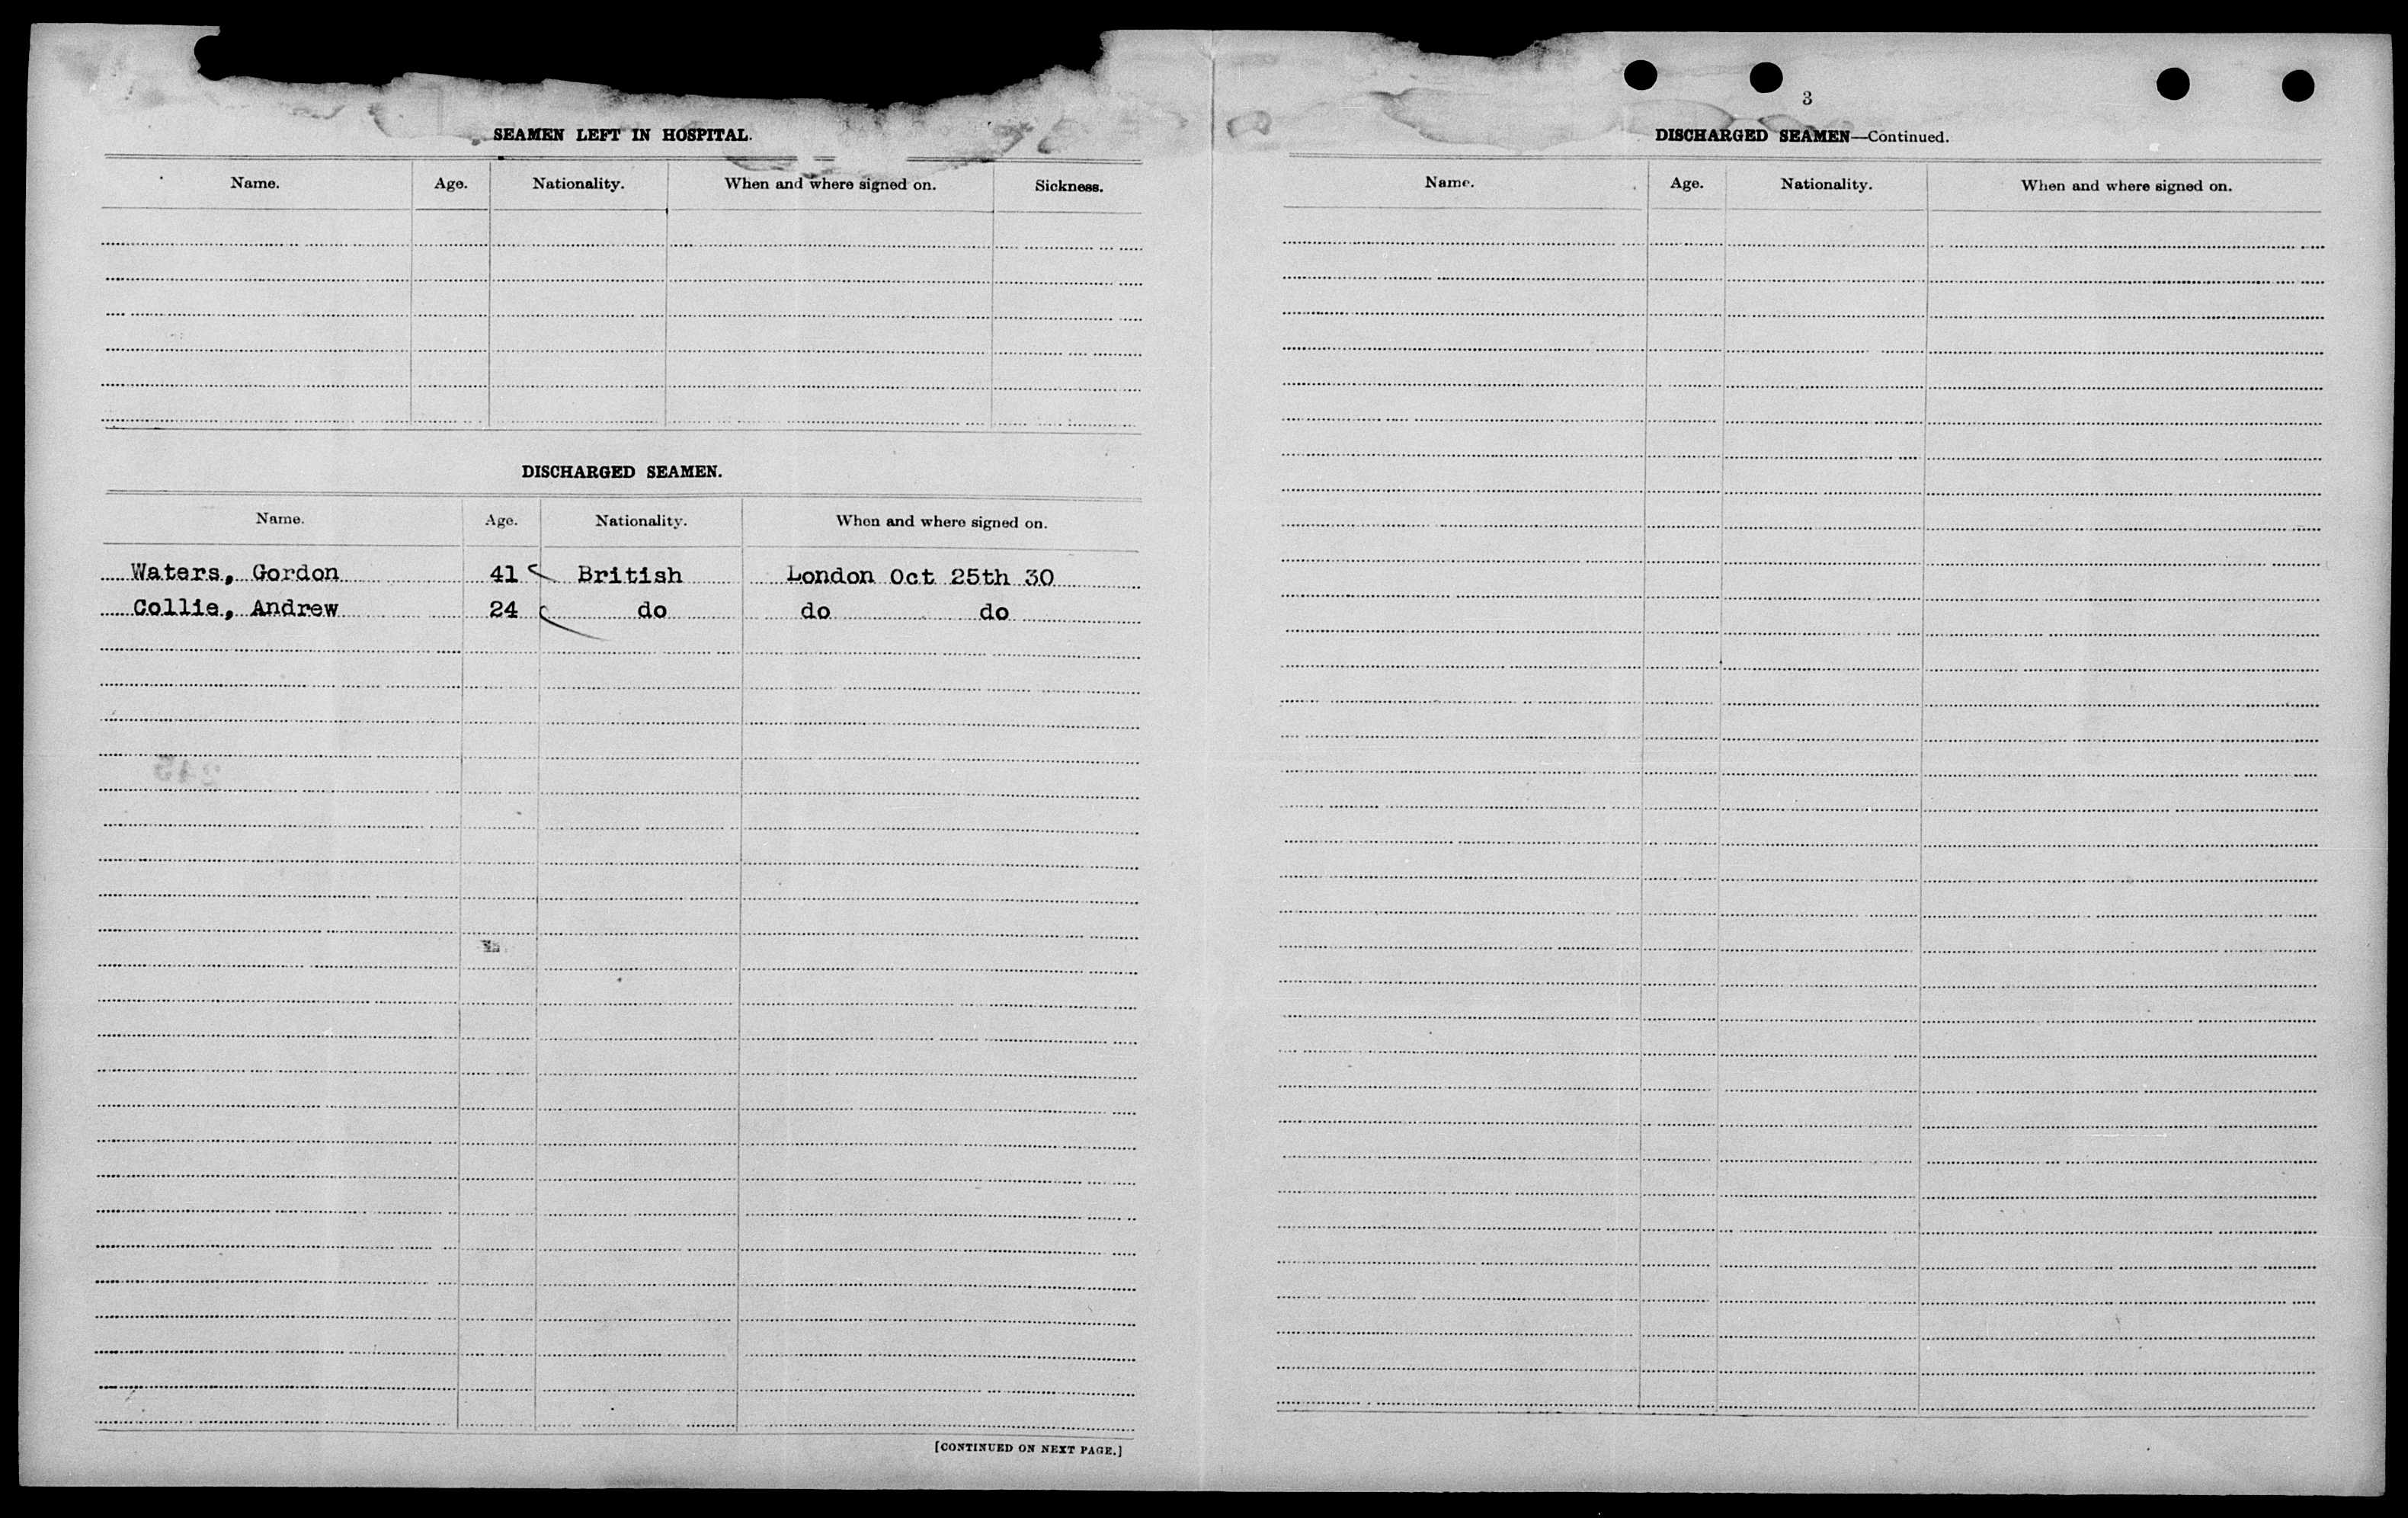 SEAMEN LEFT IN HOSPITAL.
Name. Age. Nationality. When and where signed on. Sickness.
DISCHARGED SEAMEN.
Name. Age. Nationality. When and where signed on.
Waters, Gordon 41 British London Oct 25th 30
Collie, Andrew 24 do do do
[CONTINUED ON NEXT PAGE.]
3
DISCHARGED SEAMEN—Continued.
Name. Age. Nationality. When and where signed on.